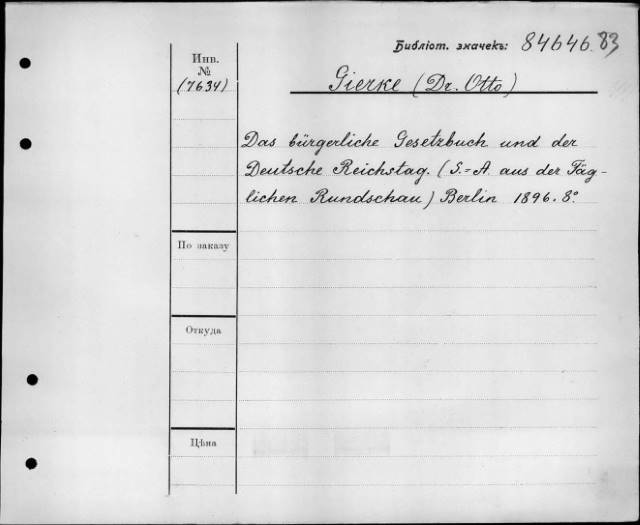 Библіот. значекъ: 84646.83
Инв.
№
(7634)
Gierke (Dr. Otto)
Das bürgerliche Gesetzbuch und der
Deutsche Reichstag. (S.=A. aus der Täg-
lichen Rundschau) Berlin 1896. 8º
По заказу
Откуда
Цѣна